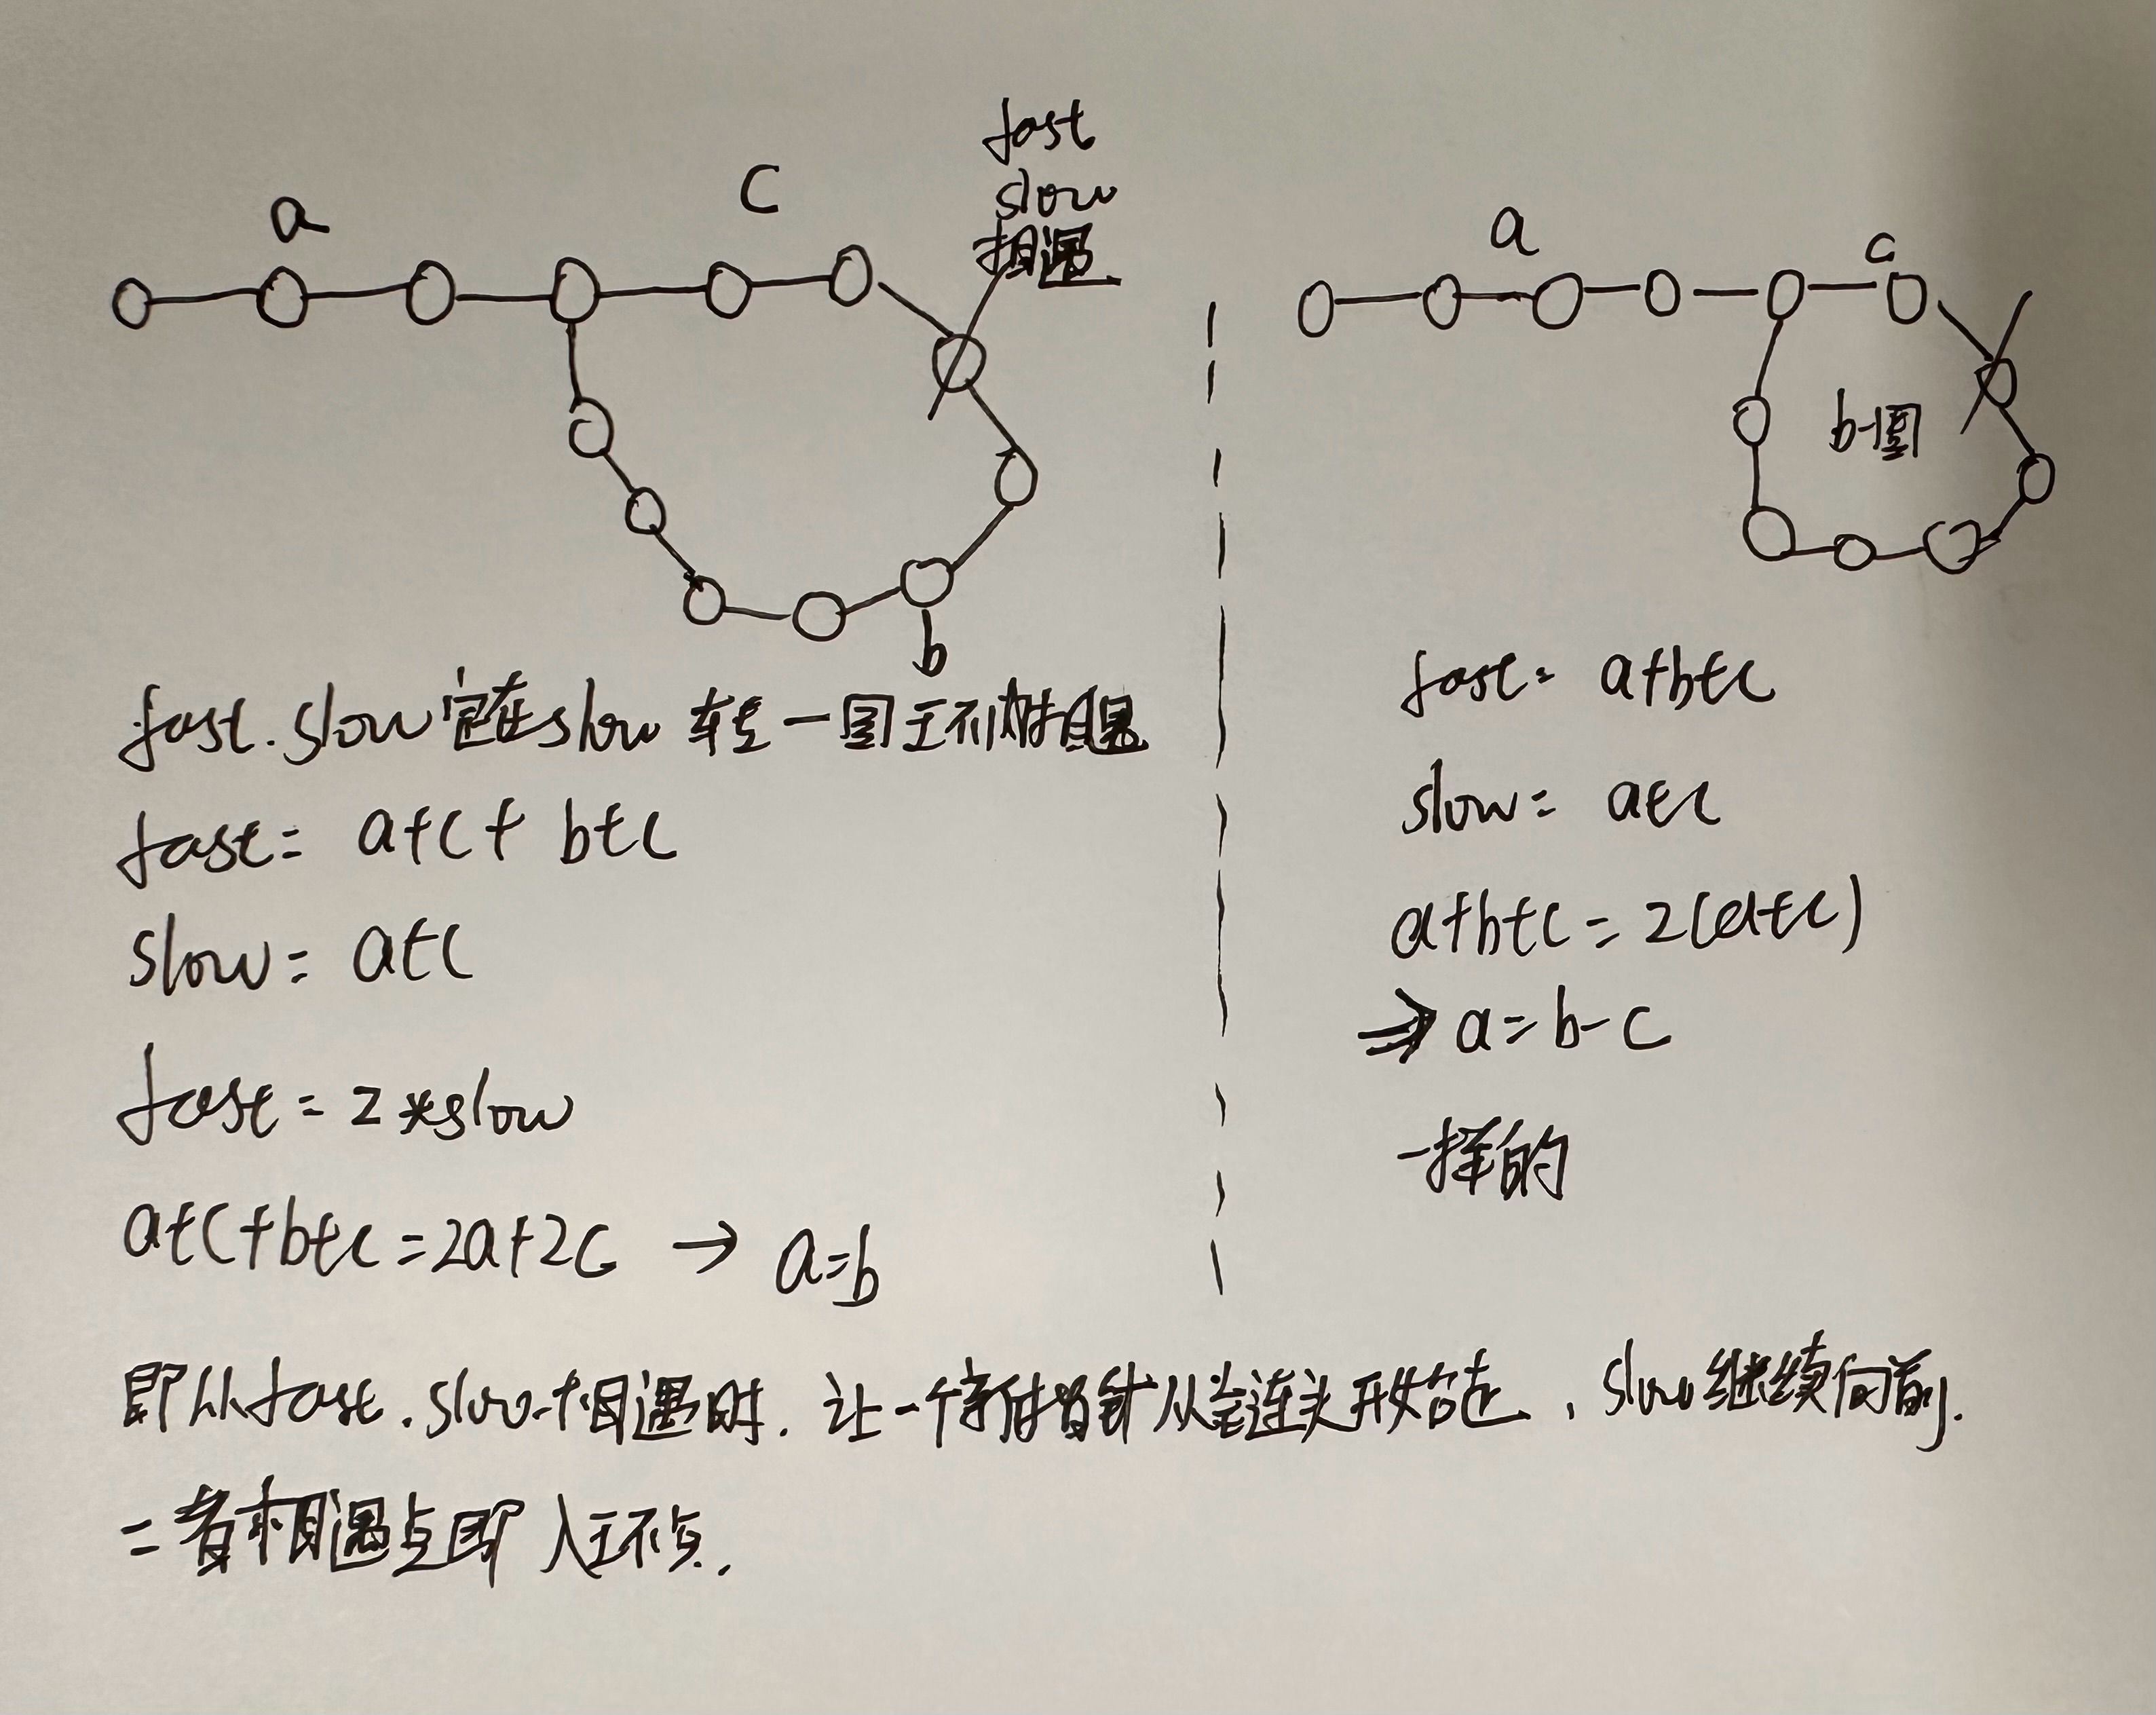 a
C
fast
slow
相遇
b
fast.slow 定在slow 转一圈至不相遇
fast= a+c+ b+c
slow= a+c
fast=2*slow
a+c+b+c=2a+2c → a=b
a
c
b一圈
fast= a+b+c
slow= a+c
a+b+c=2(a+c)
⇒ a=b-c
一样的
即从fast.slow相遇时.让一个新指针从链头开始走,slow继续向前.
二者相遇点即入环点.